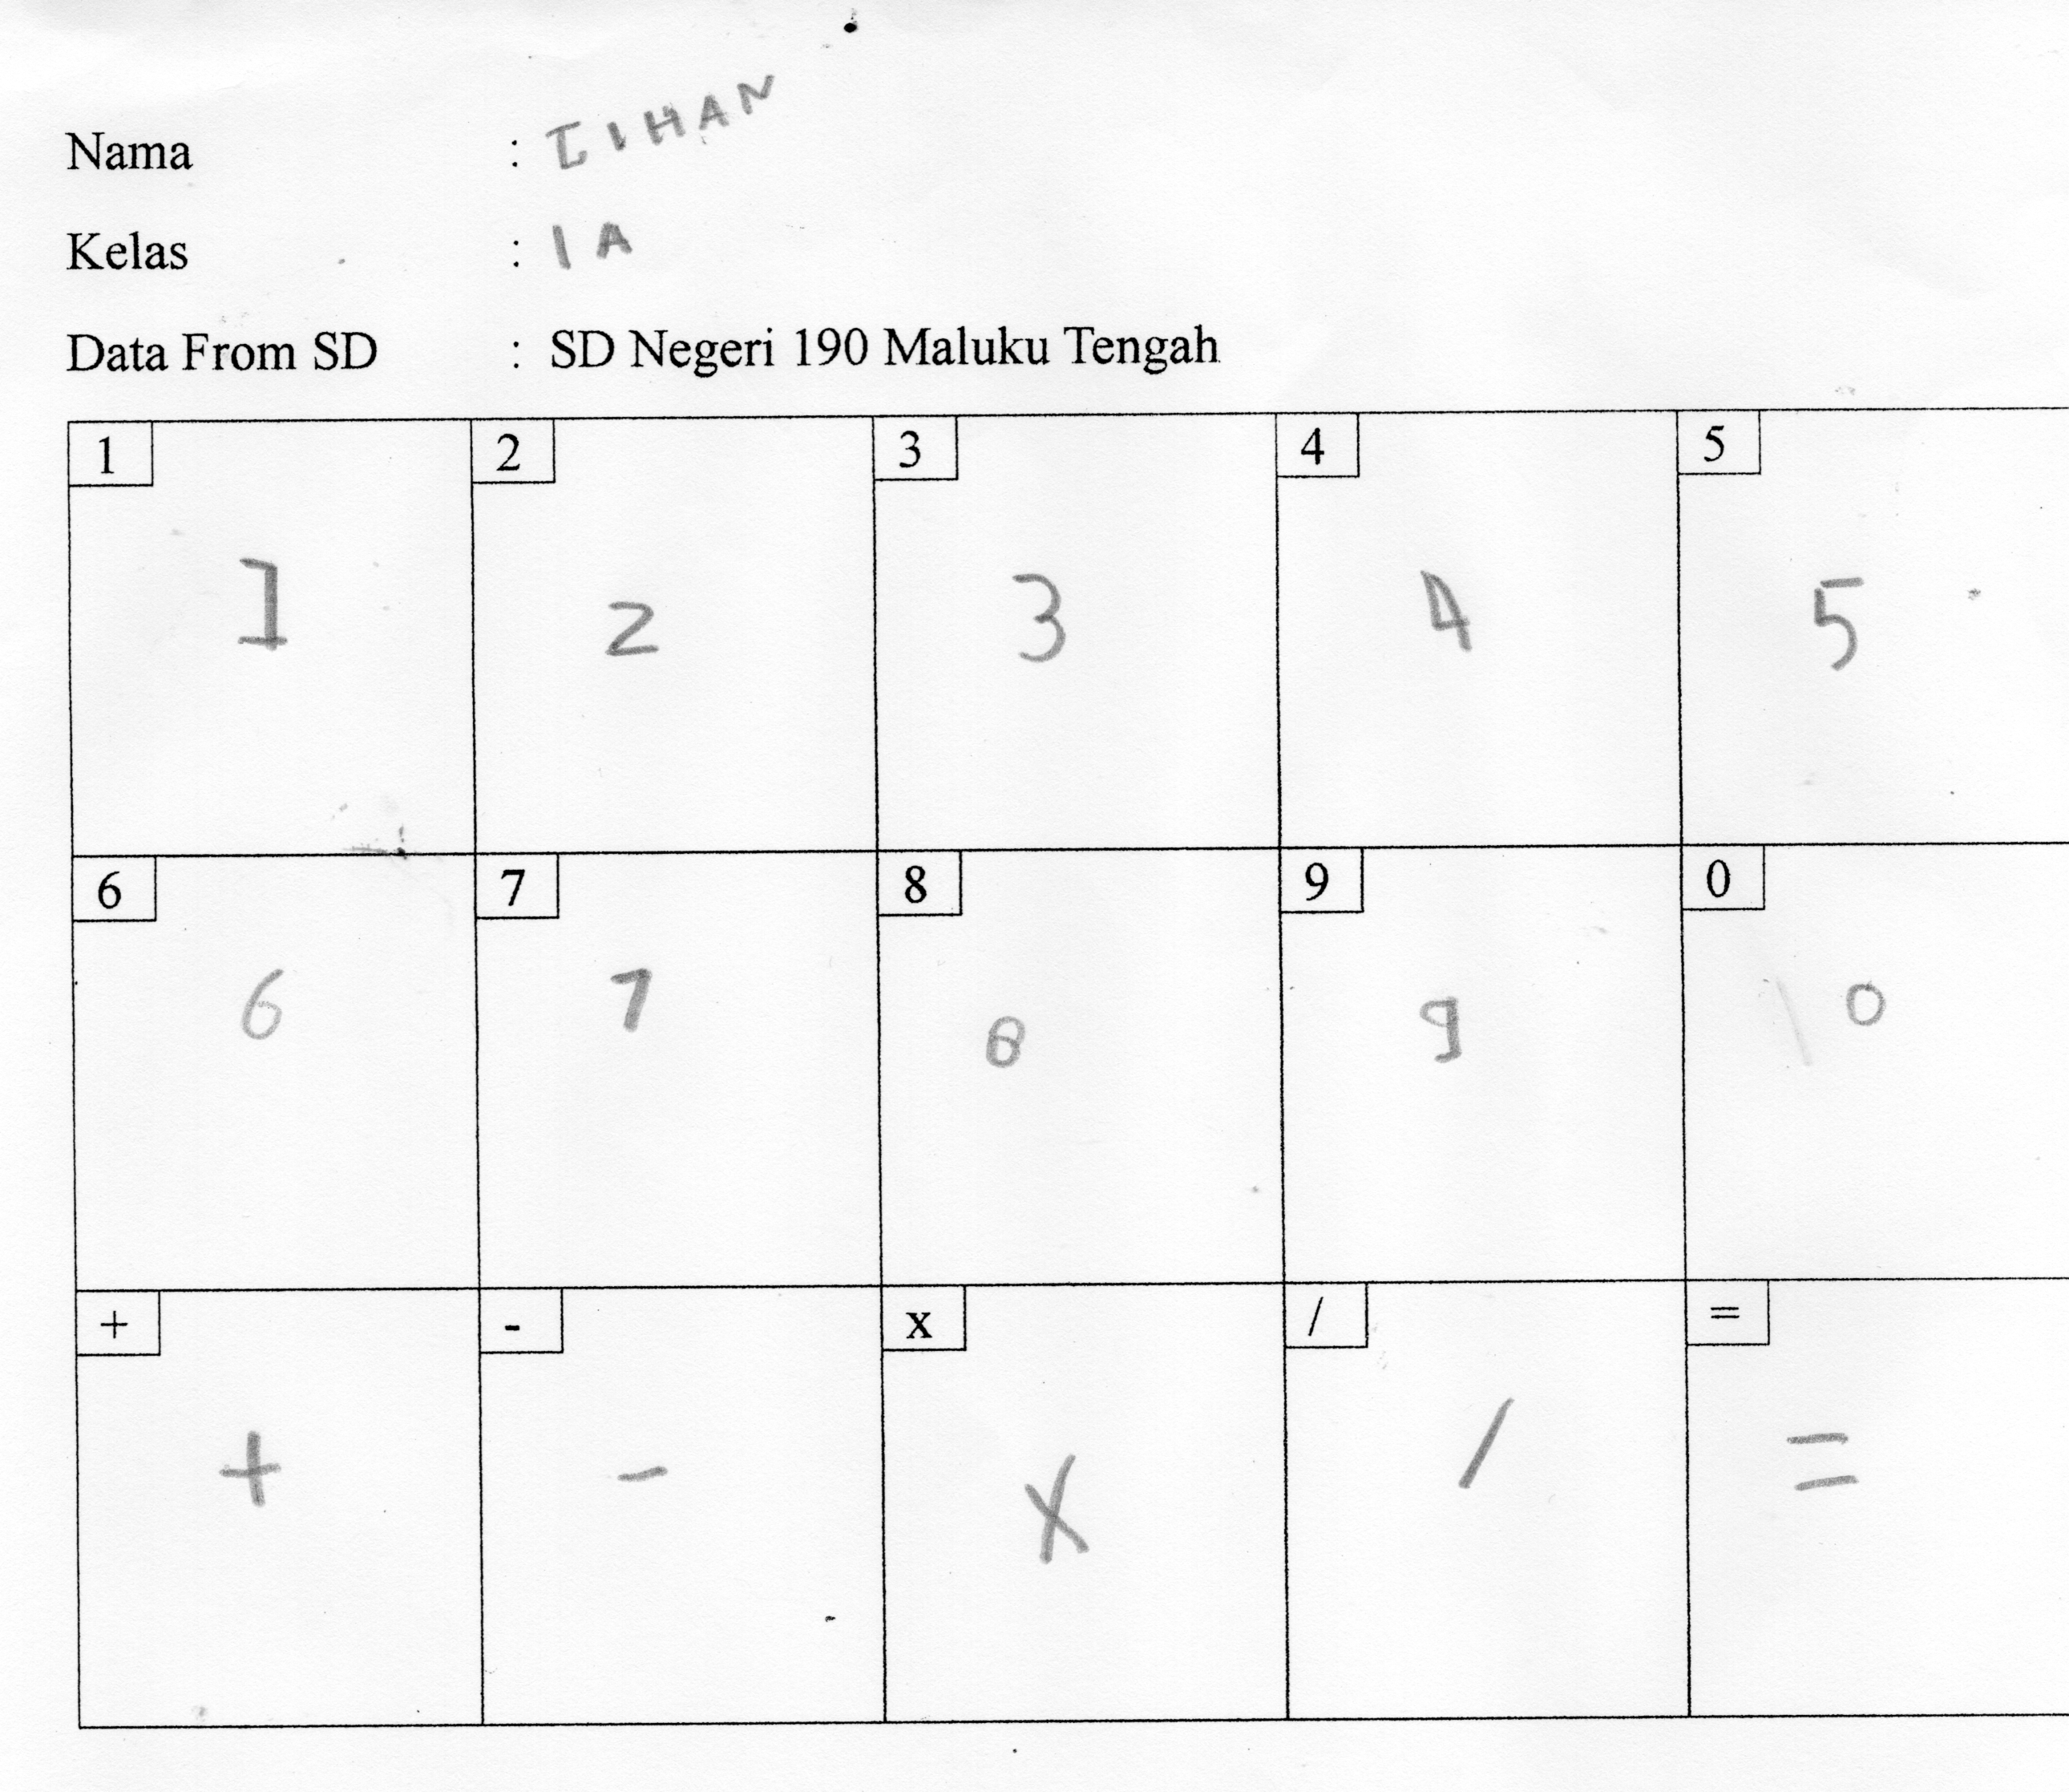 Nama : IIHAN
Kelas : 1 A
Data From SD : SD Negeri 190 Maluku Tengah
1 2 3 4 5
1 2 3 4 5
6 7 8 9 0
6 7 8 9 0
+ - x / =
+ - x / =